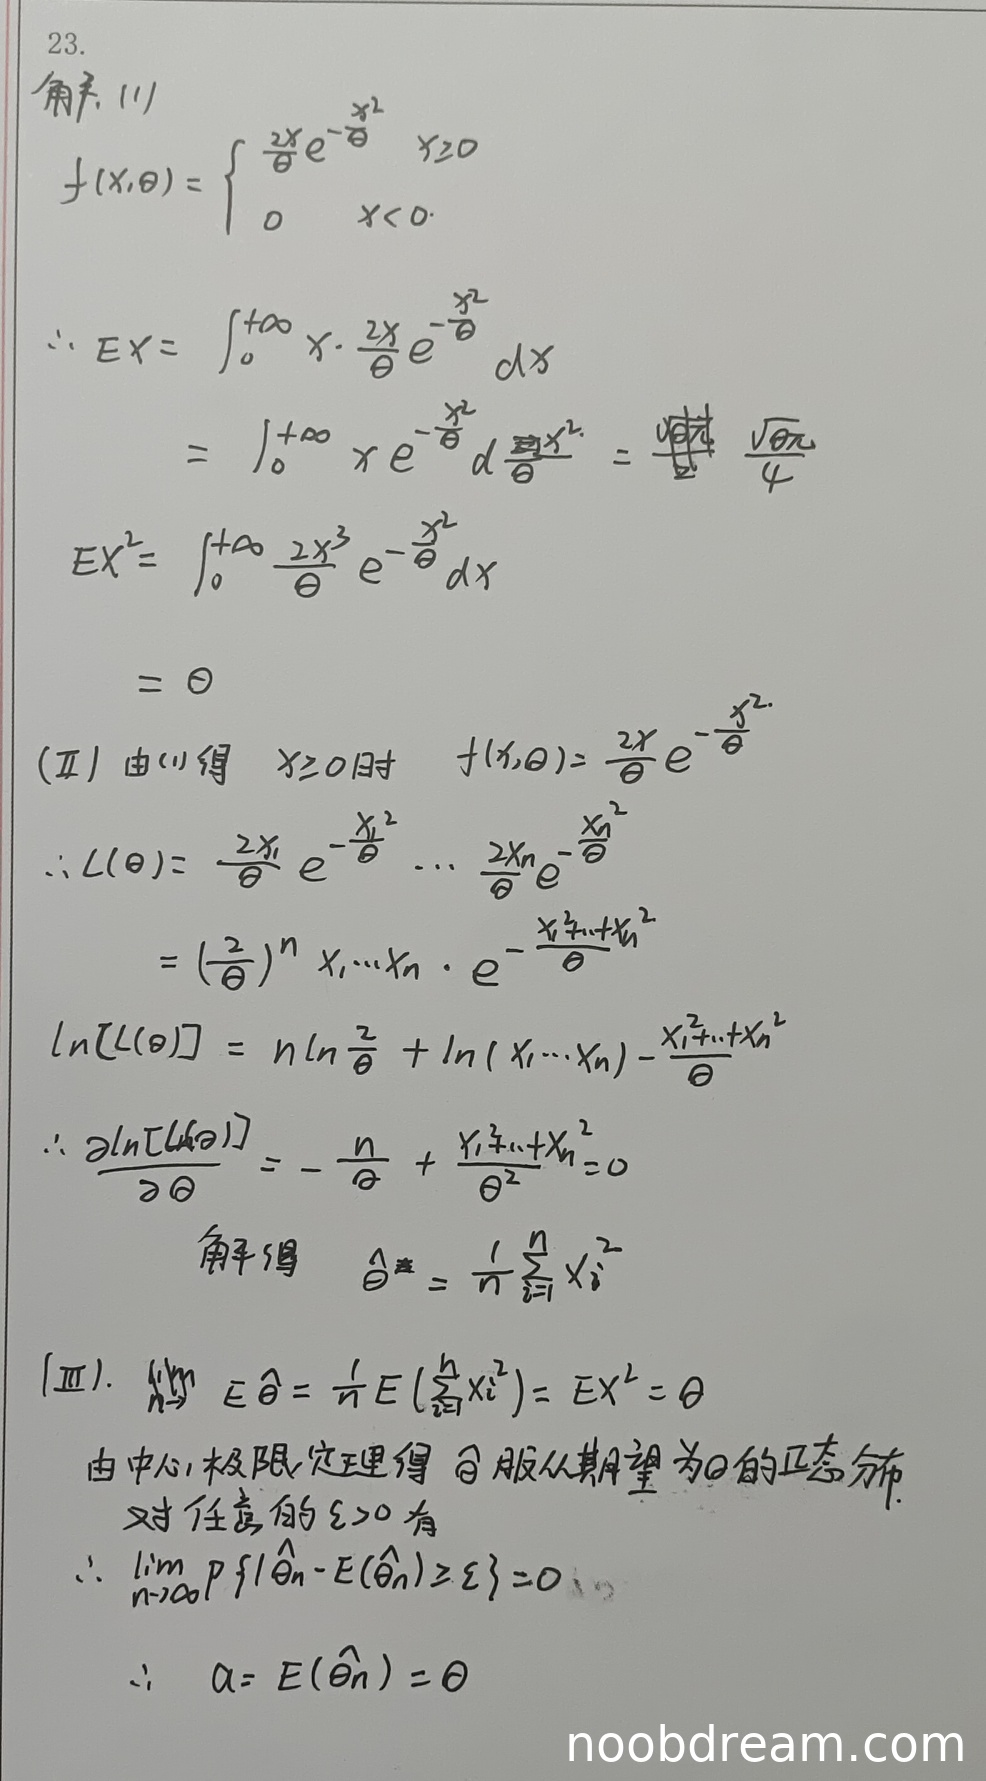 23.
解:(1)
f(x,θ) = { 2x/θ e^(-x²/θ) x≥0
0 x<0.
∴ EX = ∫₀^(+∞) x·2x/θ e^(-x²/θ) dx
= ∫₀^(+∞) x e^(-x²/θ) d x²/θ = √(θπ)/4
EX² = ∫₀^(+∞) 2x³/θ e^(-x²/θ) dx
= θ
(Ⅱ) 由(1)得 x≥0时 f(x,θ) = 2x/θ e^(-x²/θ)
∴ L(θ) = 2x₁/θ e^(-x₁²/θ) ... 2xₙ/θ e^(-xₙ²/θ)
= (2/θ)ⁿ x₁...xₙ · e^(-(x₁²+...+xₙ²)/θ)
ln[L(θ)] = n ln 2/θ + ln(x₁...xₙ) - (x₁²+...+xₙ²)/θ
∴ ∂ln[L(θ)]/∂θ = -n/θ + (x₁²+...+xₙ²)/θ² = 0
解得 θ̂ = 1/n ∑ᵢ₌₁ⁿ Xᵢ²
(Ⅲ). Eθ̂ = 1/n E(∑ᵢ₌₁ⁿ Xᵢ²) = EX² = θ
由中心极限定理得 θ̂ 服从期望为θ的正态分布.
对任意的 ε>0 有
∴ lim n→∞ P{|θ̂ₙ - E(θ̂ₙ) ≥ ε} = 0
∴ a = E(θ̂ₙ) = θ
noobdream.com